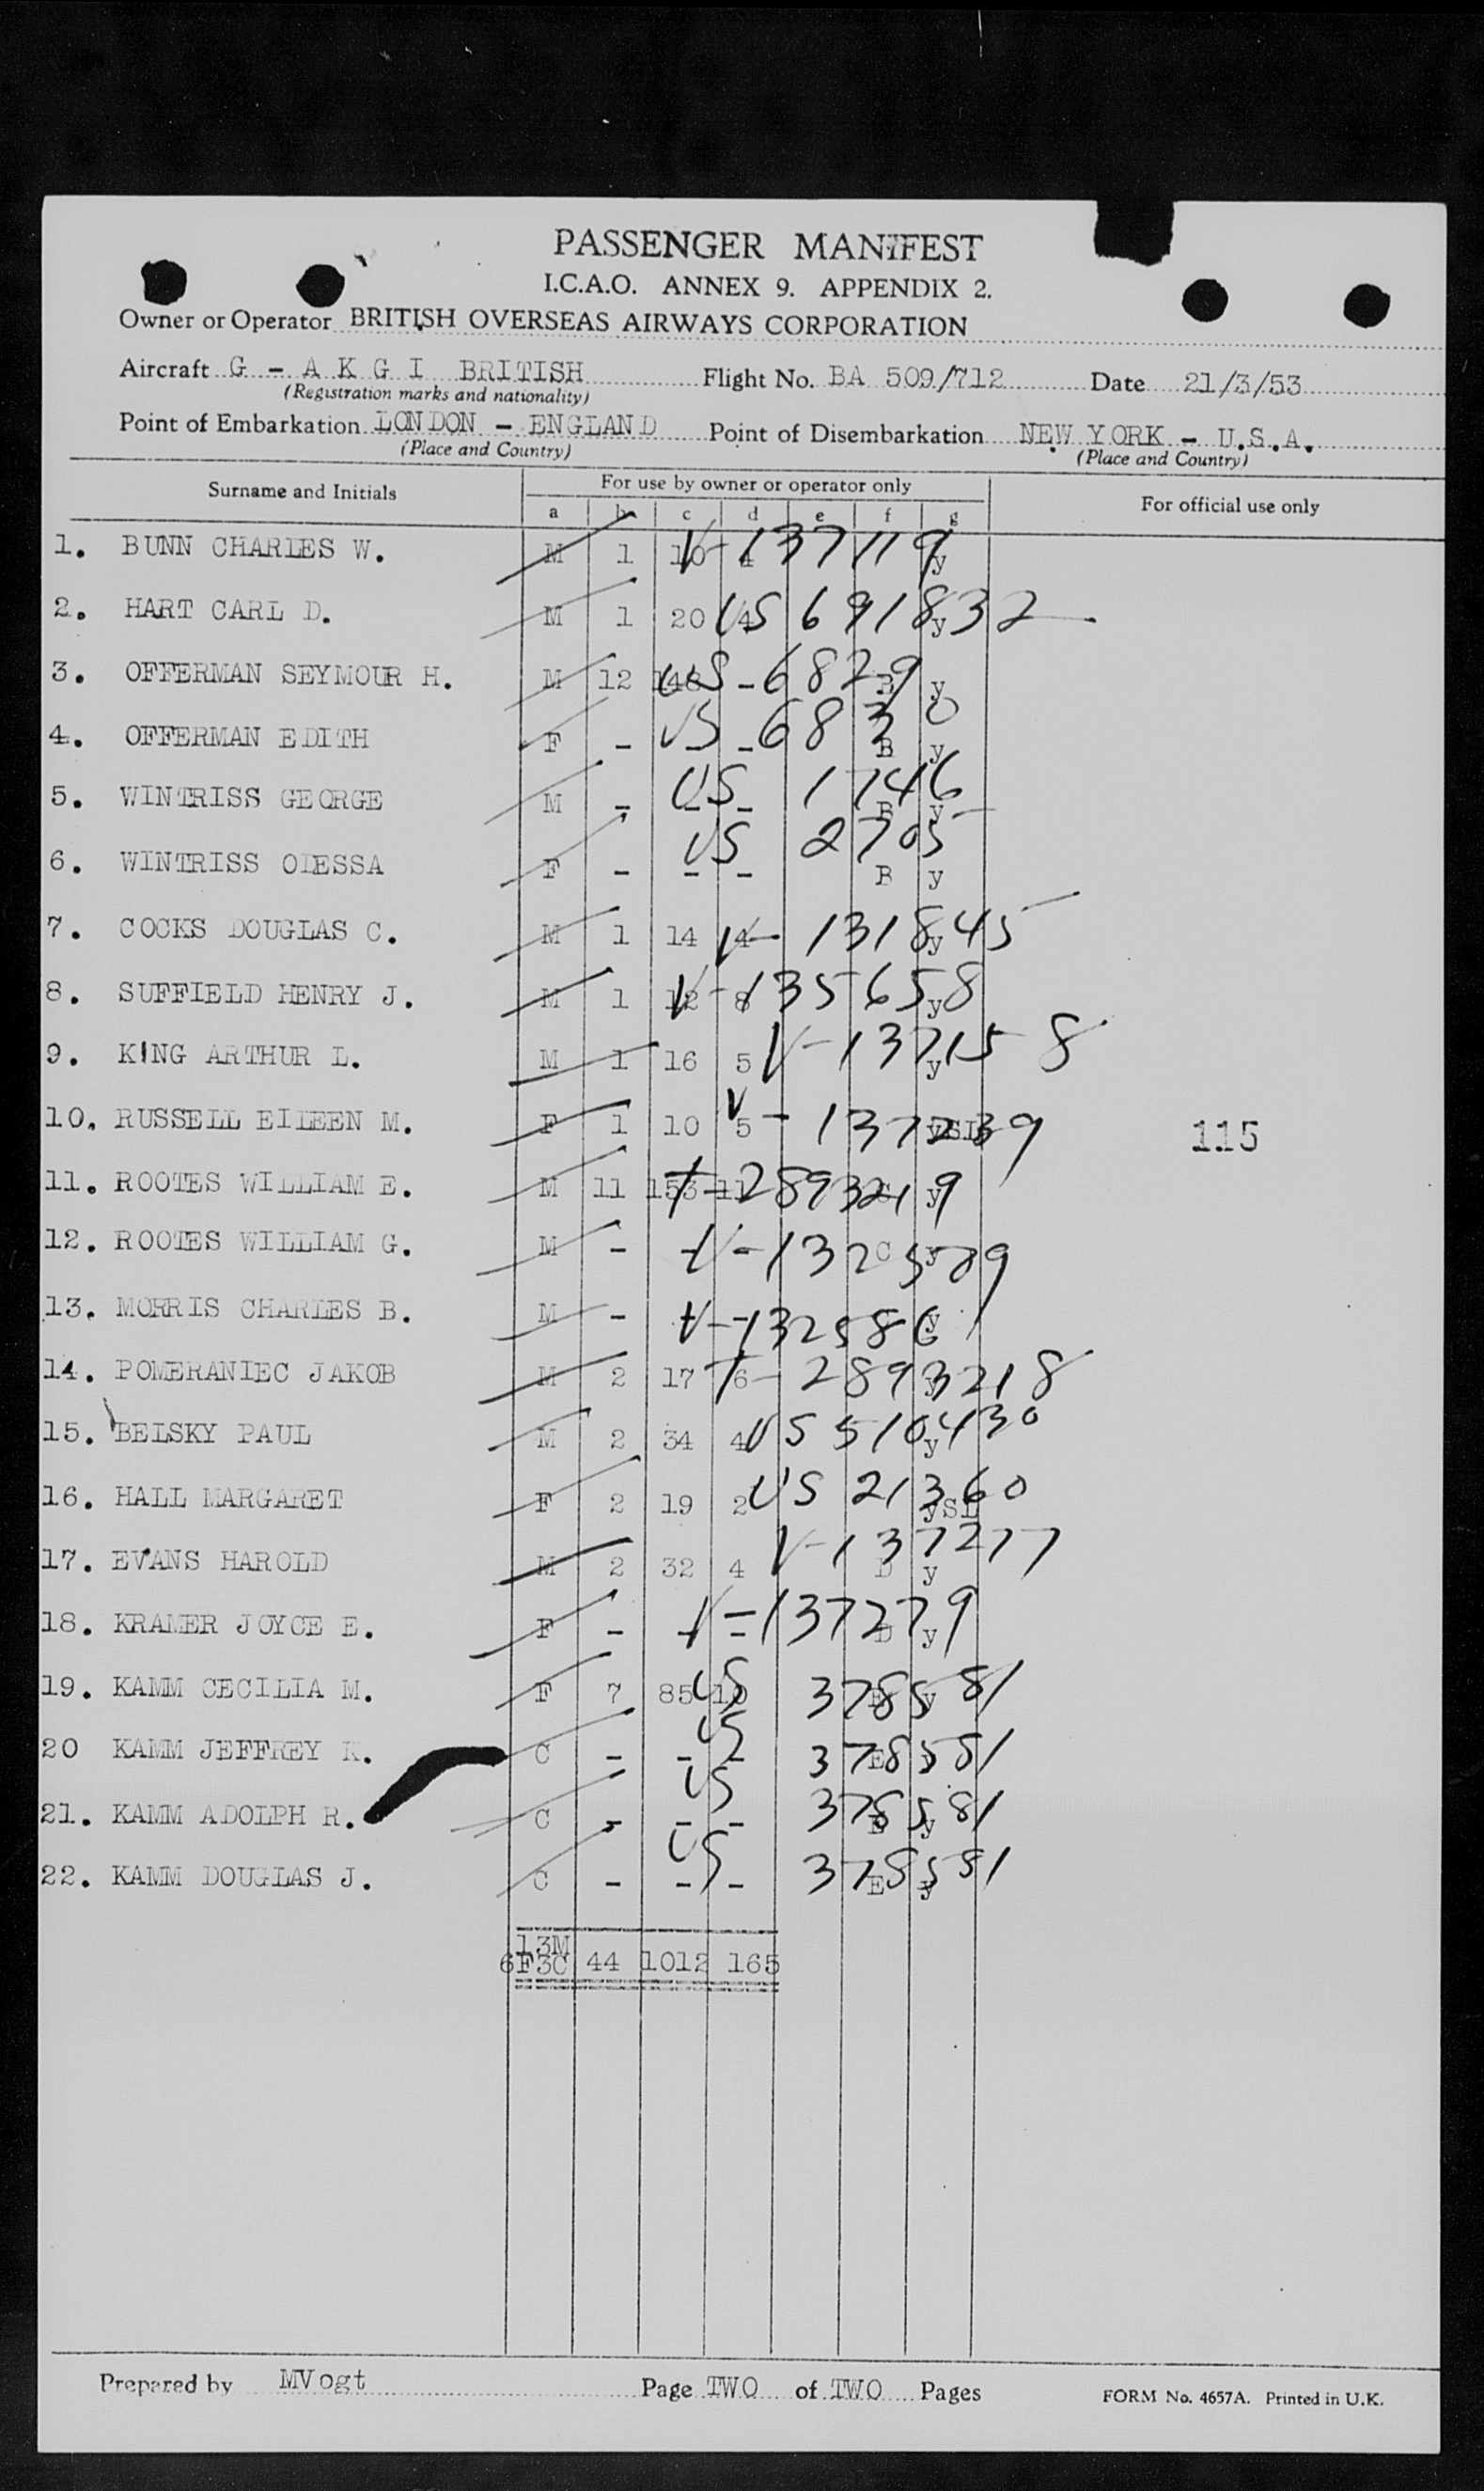 PASSENGER MANIFEST
I.C.A.O. ANNEX 9. APPENDIX 2.
Owner or Operator BRITISH OVERSEAS AIRWAYS CORPORATION
Aircraft G - A K G I BRITISH Flight No. BA 509/712 Date 21/3/53
(Registration marks and nationality)
Point of Embarkation LONDON - ENGLAND Point of Disembarkation NEW YORK - U.S.A.
(Place and Country) (Place and Country)
Surname and Initials For use by owner or operator only For official use only
a b c d e f g
1. BUNN CHARLES W. M 1 10 4 y V-137119
2. HART CARL D. M 1 20 4 y US 691832
3. OFFERMAN SEYMOUR H. M 12 148 - B y US 6829
4. OFFERMAN EDITH F - - - B y US 6830
5. WINTRISS GEORGE M - - - B y US 1746
6. WINTRISS ODESSA F - - - B y US 2705
7. COCKS DOUGLAS C. M 1 14 4 y V-131845
8. SUFFIELD HENRY J. M 1 12 8 y V-135658
9. KING ARTHUR L. M 1 16 5 y V-137158
10. RUSSELL EILEEN M. F 1 10 5 V-137239 115
11. ROOTES WILLIAM E. M 11 153 11 C y T-2893219
12. ROOTES WILLIAM G. M - - - C y V-132589
13. MORRIS CHARLES B. M - - - y V-132586
14. POMERANIEC JAKOB M 2 17 6 y T-2893218
15. BELSKY PAUL M 2 34 4 y US 510430
16. HALL MARGARET F 2 19 2 ySL US 21360
17. EVANS HAROLD M 2 32 4 D y V-137277
18. KRAMER JOYCE E. F - - - D y V-137279
19. KAMM CECILIA M. F 7 85 10 E y US 378581
20 KAMM JEFFREY K. C - - - E y US 378581
21. KAMM ADOLPH R. C - - - E y US 378581
22. KAMM DOUGLAS J. C - - - E y US 378581
13M
6F3C 44 1012 165
Prepared by MVogt Page TWO of TWO Pages FORM No. 4657A. Printed in U.K.